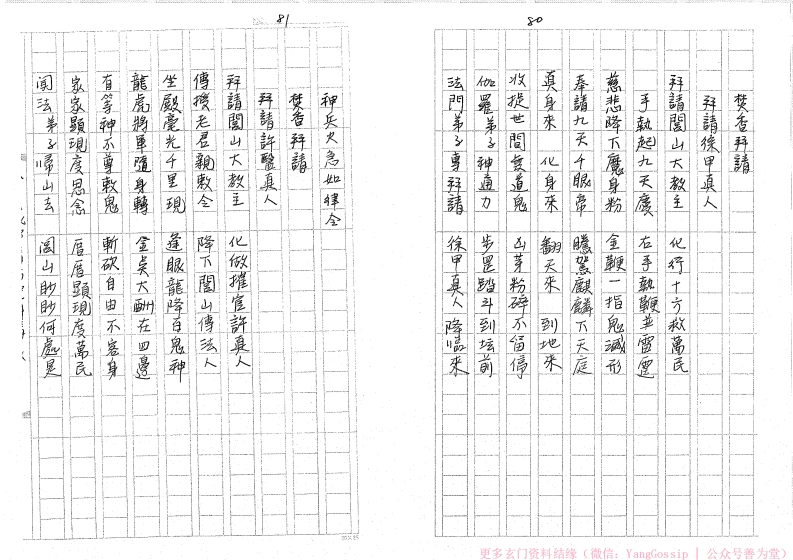 80
焚香拜請
拜請徐甲真人
拜請閭山大教主 化行十方救萬民
手執起九天慶 右手執鞭並雷霆
慈悲降下魔身粉 金鞭一指鬼滅形
奉請九天千眼帝 騰駕麒麟下天庭
真身來 化身來 翻天來 到地來
收捉世間無道鬼 凶芽粉碎不留停
伽羅弟子神通力 步罡踏斗到坛前
法門弟子專拜請 徐甲真人降臨來
81
神兵火急如律令
焚香拜請
拜請許醫真人
拜請閭山大教主 化做摧官許真人
傳授老君親敕令 降下閭山傳法人
坐殿毫光千里現 逢眼龍降百鬼神
龍虎將軍隨身轉 金奌大酬在四邊
有等神不尊敕鬼 斬砍自由不容身
家家顯現度思念 厝厝顯現度萬民
闻法弟子歸山去 閭山眇眇何處是
更多玄门资料结缘（微信：YangGossip | 公众号善为堂）